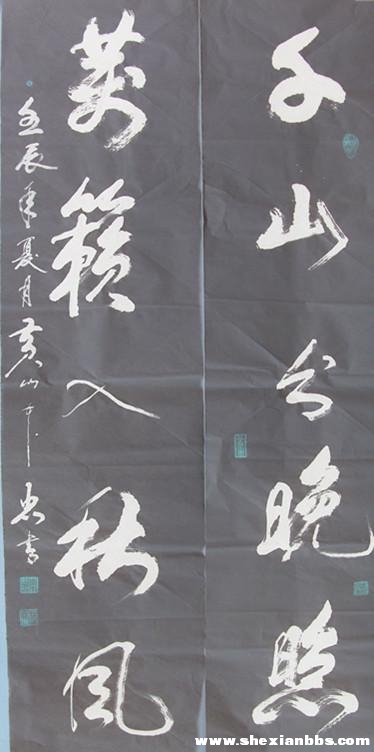 千山分晚照
萬籟入秋風
壬辰年夏月黄山
書
www.shexianbbs.com